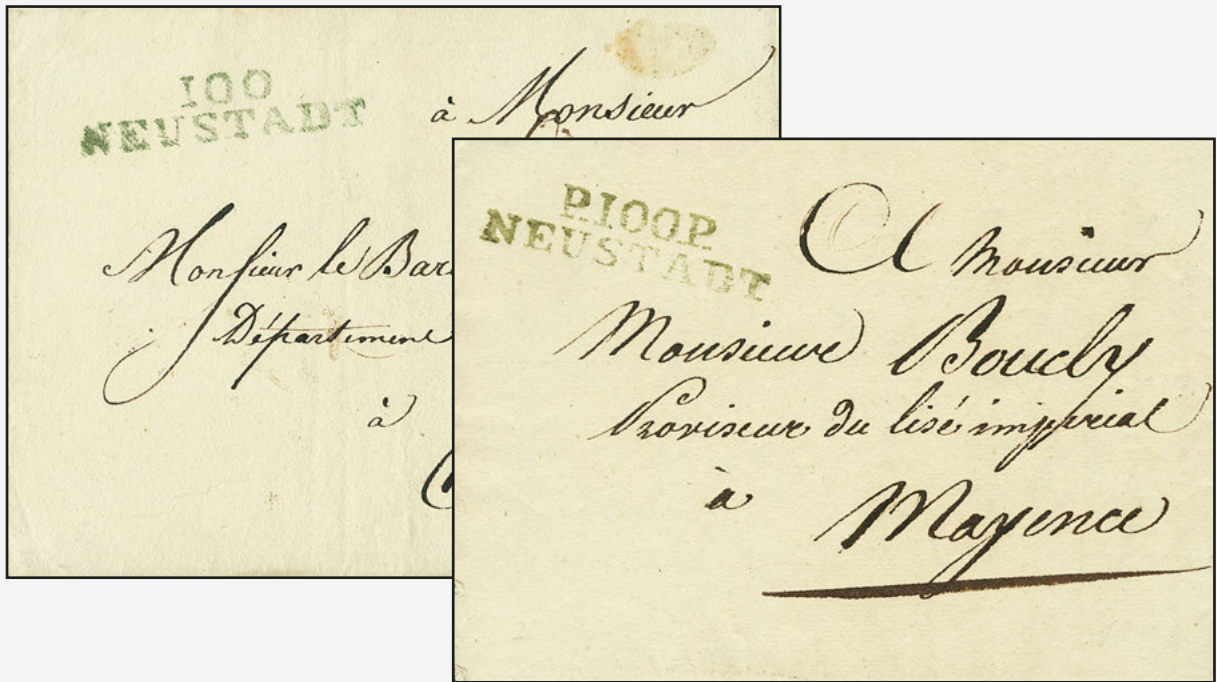 100
NEUSTADT
à Monsieur
Monsieur le Bar
Département
à
P.100.P.
NEUSTADT
A Monsieur
Monsieure Boucly
Proviseur du lisé imperial
a
Mayence